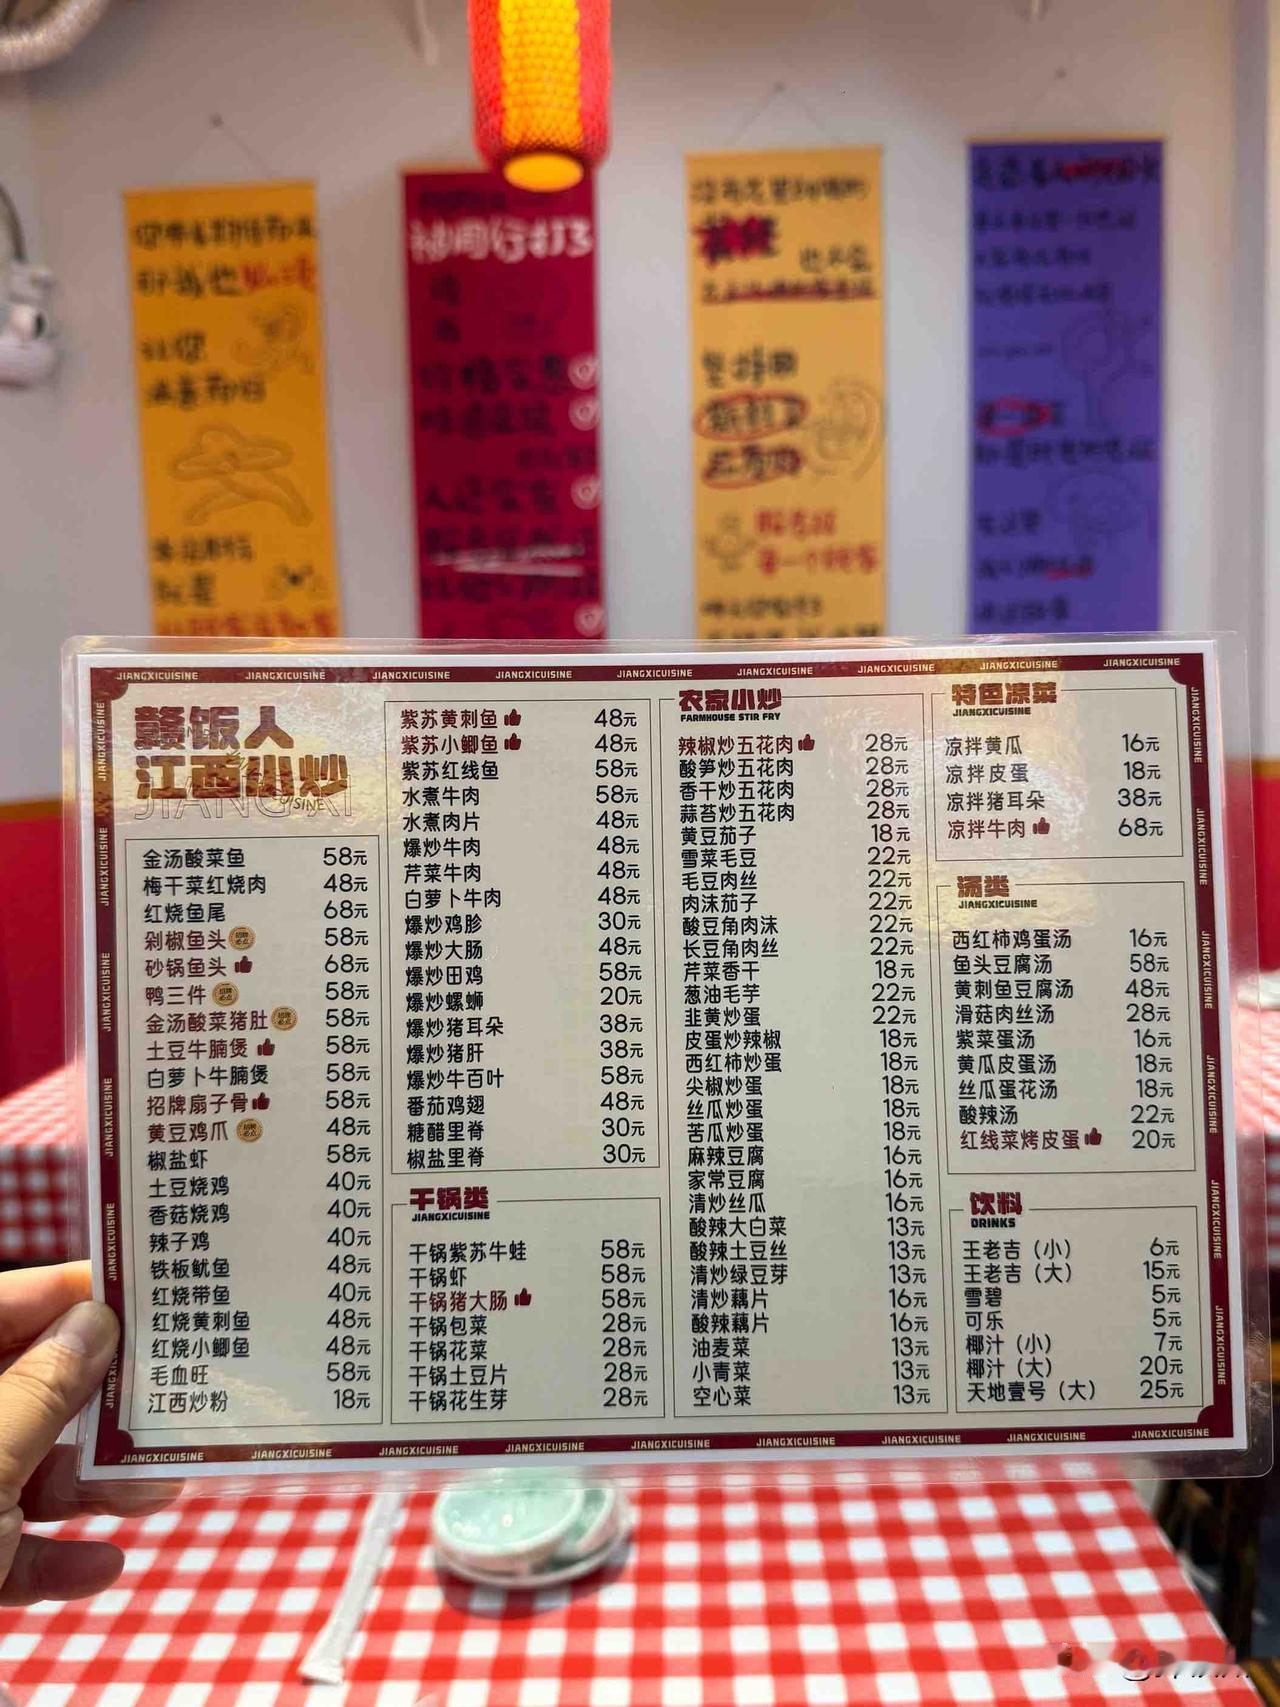 JIANGXICUISINE
赣饭人
江西小炒
JIANGXI
CUISINE
金汤酸菜鱼 58元
梅干菜红烧肉 48元
红烧鱼尾 68元
剁椒鱼头 招牌必点 58元
砂锅鱼头 68元
鸭三件 招牌必点 58元
金汤酸菜猪肚 招牌必点 58元
土豆牛腩煲 58元
白萝卜牛腩煲 58元
招牌扇子骨 58元
黄豆鸡爪 招牌必点 48元
椒盐虾 58元
土豆烧鸡 40元
香菇烧鸡 40元
辣子鸡 40元
铁板鱿鱼 48元
红烧带鱼 40元
红烧黄刺鱼 48元
红烧小鲫鱼 48元
毛血旺 58元
江西炒粉 18元
紫苏黄刺鱼 48元
紫苏小鲫鱼 48元
紫苏红线鱼 58元
水煮牛肉 58元
水煮肉片 48元
爆炒牛肉 48元
芹菜牛肉 48元
白萝卜牛肉 48元
爆炒鸡胗 30元
爆炒大肠 48元
爆炒田鸡 58元
爆炒螺蛳 20元
爆炒猪耳朵 38元
爆炒猪肝 38元
爆炒牛百叶 58元
番茄鸡翅 48元
糖醋里脊 30元
椒盐里脊 30元
干锅类
JIANGXICUISINE
干锅紫苏牛蛙 58元
干锅虾 58元
干锅猪大肠 58元
干锅包菜 28元
干锅花菜 28元
干锅土豆片 28元
干锅花生芽 28元
农家小炒
FARMHOUSE STIR FRY
辣椒炒五花肉 28元
酸笋炒五花肉 28元
香干炒五花肉 28元
蒜苔炒五花肉 28元
黄豆茄子 18元
雪菜毛豆 22元
毛豆肉丝 22元
肉沫茄子 22元
酸豆角肉沫 22元
长豆角肉丝 22元
芹菜香干 18元
葱油毛芋 22元
韭黄炒蛋 22元
皮蛋炒辣椒 18元
西红柿炒蛋 18元
尖椒炒蛋 18元
丝瓜炒蛋 18元
苦瓜炒蛋 18元
麻辣豆腐 16元
家常豆腐 16元
清炒丝瓜 16元
酸辣大白菜 13元
酸辣土豆丝 13元
清炒绿豆芽 13元
清炒藕片 16元
酸辣藕片 16元
油麦菜 13元
小青菜 13元
空心菜 13元
特色凉菜
JIANGXICUISINE
凉拌黄瓜 16元
凉拌皮蛋 18元
凉拌猪耳朵 38元
凉拌牛肉 68元
汤类
JIANGXICUISINE
西红柿鸡蛋汤 16元
鱼头豆腐汤 58元
黄刺鱼豆腐汤 48元
滑菇肉丝汤 28元
紫菜蛋汤 16元
黄瓜皮蛋汤 18元
丝瓜蛋花汤 18元
酸辣汤 22元
红线菜烤皮蛋 20元
饮料
DRINKS
王老吉（小） 6元
王老吉（大） 15元
雪碧 5元
可乐 5元
椰汁（小） 7元
椰汁（大） 20元
天地壹号（大） 25元